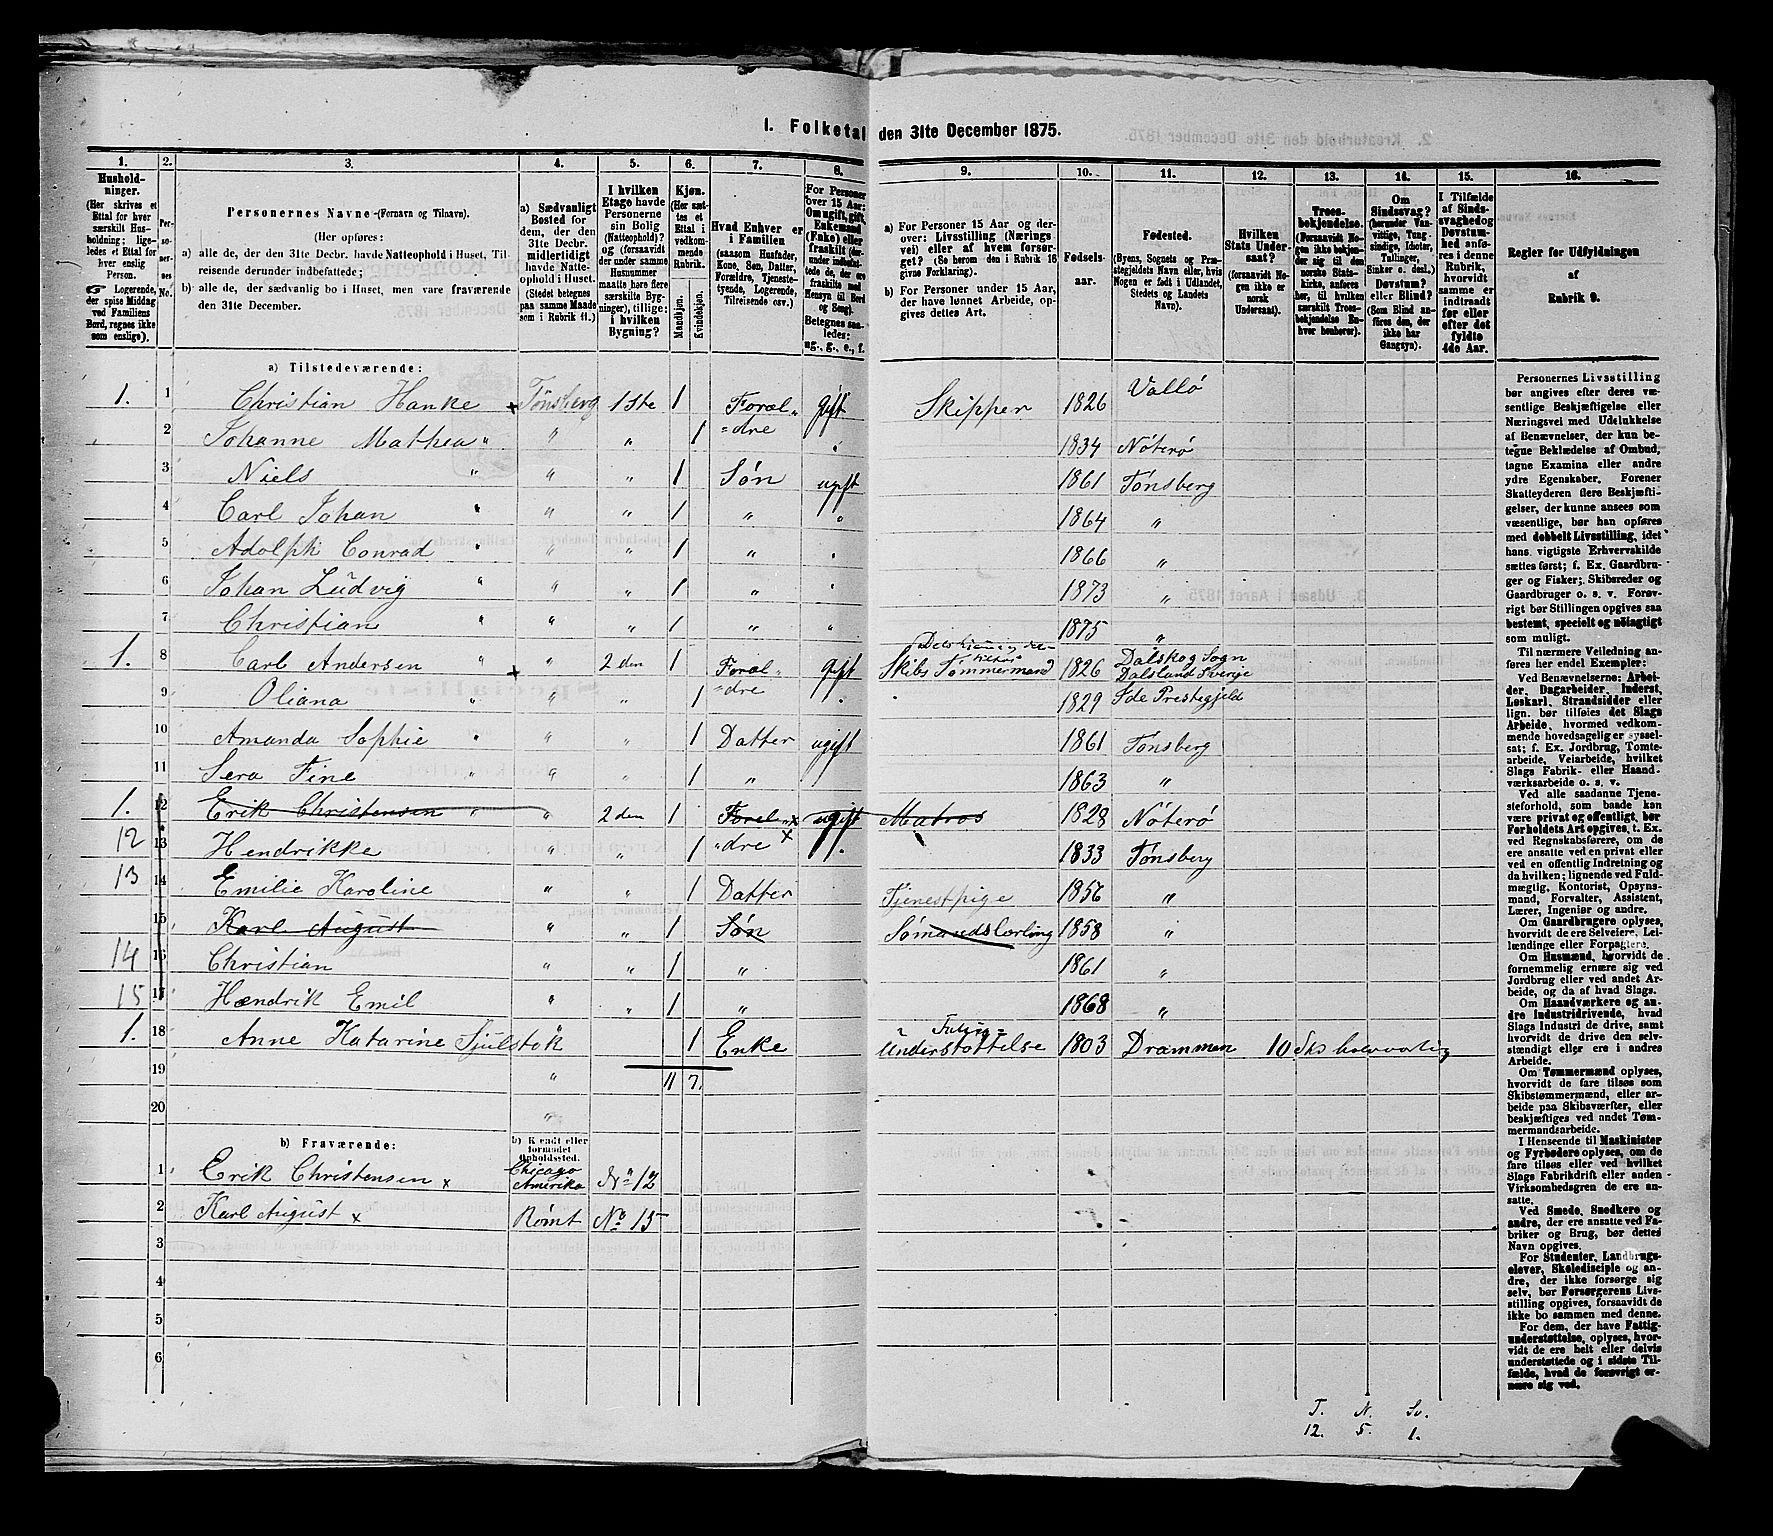 1. Folketal den 31te December 1875.
1. 2. 3. 4. 5. 6. 7. 8. 9. 10. 11. 12. 13. 14. 15. 16.
Hushold-
ninger.
(Her skrives et
Ettal for hver
særskilt Hus-
holdning; lige-
ledes et Ettal for
hver enslig
Person.
Logerende,
der spise Middag
ved Familiens
Bord, regnes ikke
som enslige).
Per-
so-
ner-
nes
No.
Personernes Navne (Fornavn og Tilnavn).
(Her opføres:
a) alle de, der den 31te Decbr. havde Natteophold i Huset, Til-
reisende derunder indbefattede;
b) alle de, der sædvanlig bo i Huset, men vare fraværende
den 31te December.
a) Sædvanligt
Bosted for
dem, der den
31te Decbr.
midlertidigt
havde Natte-
ophold i Huset.
(Stedet betegnes
paa samme Maade
som i Rubrik 11.)
I hvilken
Etage havde
Personerne
sin Bolig
(Natteophold)?
og (forsaavidt
der under samme
Husnummer
maatte høre flere
særskilte Byg-
ninger), tillige:
i hvilken
Bygning?
Kjøn.
(Her sæt-
tes et
Ettal i
vedkom-
mende
Rubrik.
Mandkjøn.
Kvindekjøn.
Hvad Enhver er
i Familien
(saasom Husfader,
Kone, Søn, Datter,
Forældre, Tjeneste-
tyende, Logerende,
Tilreisende osv.)
For Personer
over 15 Aar:
Om ugift, gift,
Enkemand
(Enke) eller
fraskilt
Hensyn til Bord
og Seng).
Betegnes saa-
ledes:
ug., g., e., f.
a) For Personer 15 Aar og der-
over: Livsstilling (Nærings-
vei) eller af hvem forsør-
get? (Se herom den i Rubrik 16
givne Forklaring).
b) For Personer under 15 Aar,
der have lønnet Arbeide, op-
gives dettes Art.
Fødsels-
aar.
Fødested.
(Byens, Sognets og Præ-
stegjeldets Navn eller, hvis
Nogen er født i Udlandet,
Stedets og Landets
Navn).
Hvilken
Stats Under-
saat?
(forsaavidt No-
gen ikke er
norsk
Undersaat).
Troes-
bekjendelse.
(Forsaavidt No-
gen ikke bekjen-
der sig til den
norske Stats-
kirke, anføres
her, til hvilken
særskilt Troes-
bekjendelse En-
hver henhører).
Om
Sindssvag?
(herunder Van-
vittige, Tung-
sindige, Idioter,
Tullinger,
Sinker o. desl.)
Døvstum?
eller Blind?
(Som Blind an-
føres den, der
ikke har
Gangsyn).
I Tilfælde
af Sinds-
svaghed og
Døvstum-
hed anfø-
res i denne
Rubrik,
hvorvidt
samme er
indtraadt
før eller
efter det
fyldte
4de Aar.
Regler for Udfyldningen
af
Rubrik 9.
a) Tilstedeværende:
1. 1 Christian Hanke × Tönsberg 1 ste 1 Foræl- gift Skipper 1826 Vallö
2 Johanne Mathea " " " 1 =dre " 1834 Nöterö
3 Niels " " " 1 Sön ugift 1861 Tönsberg
4 Carl Johan " " " 1 " " 1864 "
5 Adolph Conrad " " " 1 " " 1866 "
6 Johan Ludvig " " " 1 " " 1873 "
7 Christian " " " 1 " " 1875 "
1. 8 Carl Andersen " × " 2 den 1 Foræl- gift Skibs Tömmermand 1826 Dalskog Sogn Dalsland Sverige
9 Oliana " " " 1 =dre " 1829 Sde Prestegjeld
10 Amanda Sophie " " " 1 Datter ugift 1861 Tönsberg
11 Sera Fine " " " 1 " 1863 "
1. 12 Erik Christensen " " 2 den 1 Forel- × ugift Matros 1828 Nöterö
12 13 Hendrikke " " 1 "dre × " 1833 Tönsberg
13 14 Emilie Karoline " " 1 Datter Tjenestpige 1856 "
15 Karl August " " 1 Sön Sömandslærling 1858 "
14 16 Christian " " 1 " 1861 "
15 17 Hændrik Emil " " 1 " 1868 "
1. 18 Anne Katarine Sjulstok " 1 Enke Understöttelse 1803 Drammen
19 " 11 7.
20 "
b) Fraværende:
b) Kjendt eller
formodet
Opholdssted.
1 Erik Christensen × Chicago Amerika No 12
2 Karl August × Römt No 15
3
4
5
6
Personernes Livsstilling
bør angives efter deres væ-
sentlige Beskjæftigelse eller
Næringsvei med Udelukkelse
af Benævnelser, der kun be-
tegne Beklædelse af Ombud,
tagne Examina eller andre
ydre Egenskaber. Forener
Skatteyderen flere Beskjæfti-
gelser, der kunne ansees som
væsentlige, bør han opføres
med dobbelt Livsstilling, idet
hans vigtigste Erhvervskilde
sættes først; f. Ex. Gaardbru-
ger og Fisker; Skibsreder og
Gaardbruger o. s. v. Forøv-
rigt bør Stillingen opgives saa
bestemt, specielt og nøiagtigt
som muligt.
Til nærmere Veiledning an-
føres her endel Exempler:
Ved Benævnelserne: Arbei-
der, Dagarbeider, Inderst,
Løskarl, Strandsidder eller
lign. bør tilføies det Slags
Arbeide, hvormed vedkom-
mende hovedsagelig er syssel-
sat; f. Ex. Jordbrug, Tomte-
arbeide, Veiarbeide, hvilket
Slags Fabrik- eller Haand-
værksarbeide o. s. v.
Ved alle saadanne Tjene-
steforhold, som baade kan
være privat og offentligt, bør
Forholdets Art opgives, t. Ex.
ved Regnskabsførere, om de
ere ansatte ved en privat eller
ved en offentlig Indretning og
da hvilken; lignende ved Fuld-
mægtig, Kontorist, Opsyns-
mand, Forvalter, Assistent,
Lærer, Ingeniør og andre.
Om Gaardbrugere oplyses,
hvorvidt de ere Selveiere, Lei-
lændinge eller Forpagtere.
Om Husmænd, hvorvidt de
fornemmelig ernære sig ved
Jordbrug eller ved andet Ar-
beide, og da af hvad Slags.
Om Haandværkere og an-
dre Industridrivende, hvad
Slags Industri de drive, samt
hvorvidt de drive den selv-
stændigt eller ere i andres
Arbeide.
Om Tømmermænd oplyses,
hvorvidt de fare tilsøs som
Skibstømmermænd, eller ar-
beide paa Skibsværfter, eller
beskjæftiges ved andet Tøm-
mermandsarbeide.
I Henseende til Maskinister
og Fyrbødere oplyses, om de
fare tilsøs eller ved hvilket
Slags Fabrikdrift eller anden
Virksomhedsgren de ere an-
satte.
Ved Smede, Snedkere og
andre, der ere ansatte ved Fa-
briker og Brug, bør dettes
Navn opgives.
For Studenter, Landbrugs-
elever, Skoledisciple og an-
dre, der ikke forsørge sig
selv, bør Forsørgerens Livs-
stilling opgives, forsaavidt de
ikke bo sammen med denne.
For dem, der have Fattig-
understøttelse, oplyses, hvor-
vidt de ere helt eller delvis
understøttede og i sidste Til-
fælde, hvad de forøvrigt er-
nære sig ved.
T. N. Sv.
12. 5. 1.